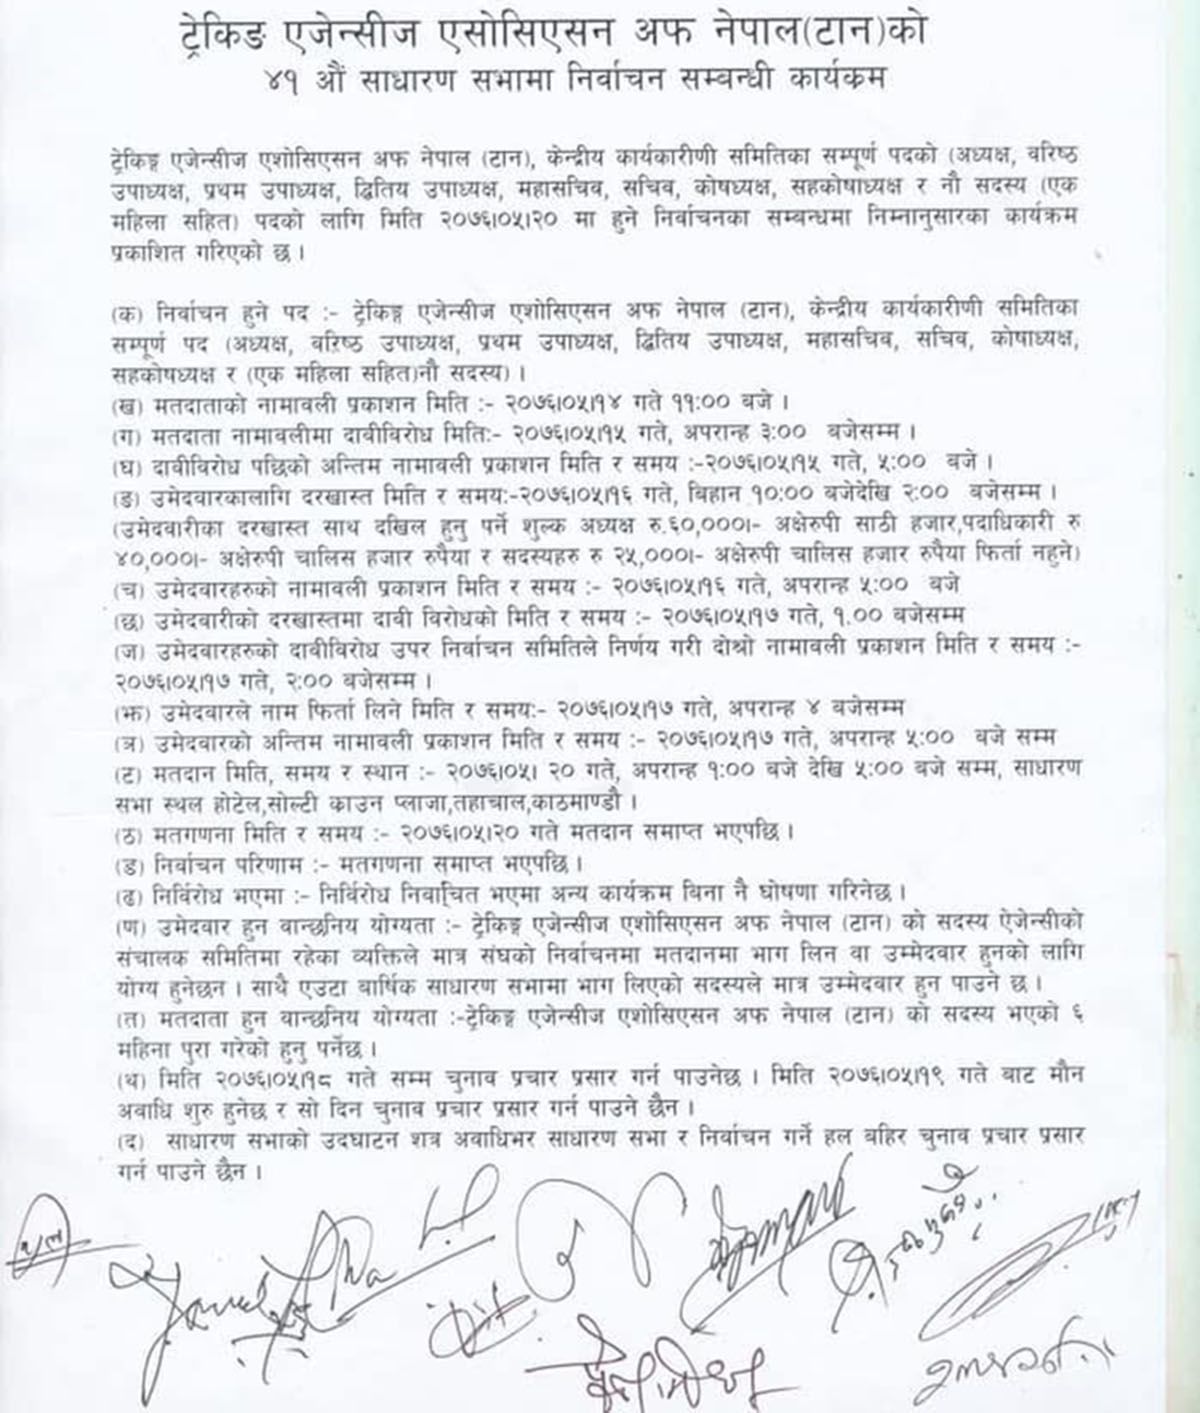 ट्रेकिङ एजेन्सीज एसोसिएसन अफ नेपाल(टान)को
४१ औं साधारण सभामा निर्वाचन सम्बन्धी कार्यक्रम
ट्रेकिङ्ग एजेन्सीज एशोसिएसन अफ नेपाल (टान), केन्द्रीय कार्यकारीणी समितिका सम्पूर्ण पदको (अध्यक्ष, वरिष्ठ
उपाध्यक्ष, प्रथम उपाध्यक्ष, द्वितिय उपाध्यक्ष, महासचिव, सचिव, कोषध्यक्ष, सहकोषाध्यक्ष र नौ सदस्य (एक
महिला सहित) पदको लागि मिति २०७६।०५।२० मा हुने निर्वाचनका सम्बन्धमा निम्नानुसारका कार्यक्रम
प्रकाशित गरिएको छ ।
(क) निर्वाचन हुने पद :- ट्रेकिङ्ग एजेन्सीज एशोसिएसन अफ नेपाल (टान), केन्द्रीय कार्यकारीणी समितिका
सम्पूर्ण पद (अध्यक्ष, वरिष्ठ उपाध्यक्ष, प्रथम उपाध्यक्ष, द्वितिय उपाध्यक्ष, महासचिव, सचिव, कोषाध्यक्ष,
सहकोषध्यक्ष र (एक महिला सहित)नौ सदस्य) ।
(ख) मतदाताको नामावली प्रकाशन मिति :- २०७६।०५।१४ गते ११:०० बजे ।
(ग) मतदाता नामावलीमा दावीविरोध मिति:- २०७६।०५।१५ गते, अपरान्ह ३:०० बजेसम्म ।
(घ) दावीविरोध पछिको अन्तिम नामावली प्रकाशन मिति र समय :-२०७६।०५।१५ गते, ५:०० बजे ।
(ङ) उमेदवारकालागि दरखास्त मिति र समय:-२०७६।०५।१६ गते, बिहान १०:०० बजेदेखि २:०० बजेसम्म ।
(उमेदवारीका दरखास्त साथ दखिल हुनु पर्ने शुल्क अध्यक्ष रु.६०,०००।- अक्षेरुपी साठी हजार,पदाधिकारी रु
४०,०००।- अक्षेरुपी चालिस हजार रुपैया र सदस्यहरु रु २५,०००।- अक्षेरुपी चालिस हजार रुपैया फिर्ता नहुने)
(च) उमेदवारहरुको नामावली प्रकाशन मिति र समय :- २०७६।०५।१६ गते, अपरान्ह ५:०० बजे
(छ) उमेदवारीको दरखास्तमा दावी विरोधको मिति र समय :- २०७६।०५।१७ गते, १.०० बजेसम्म
(ज) उमेदवारहरुको दावीविरोध उपर निर्वाचन समितिले निर्णय गरी दोश्रो नामावली प्रकाशन मिति र समय :-
२०७६।०५।१७ गते, २:०० बजेसम्म ।
(झ) उमेदवारले नाम फिर्ता लिने मिति र समय:- २०७६।०५।१७ गते, अपरान्ह ४ बजेसम्म
(ञ) उमेदवारको अन्तिम नामावली प्रकाशन मिति र समय :- २०७६।०५।१७ गते, अपरान्ह ५:०० बजे सम्म
(ट) मतदान मिति, समय र स्थान :- २०७६।०५। २० गते, अपरान्ह १:०० बजे देखि ५:०० बजे सम्म, साधारण
सभा स्थल होटेल,सोल्टी क्राउन प्लाजा,तहाचाल,काठमाण्डौ ।
(ठ) मतगणना मिति र समय :- २०७६।०५।२० गते मतदान समाप्त भएपछि ।
(ड) निर्वाचन परिणाम :- मतगणना समाप्त भएपछि ।
(ढ) निर्विरोध भएमा :- निर्विरोध निर्वाचित भएमा अन्य कार्यक्रम बिना नै घोषणा गरिनेछ ।
(ण) उमेदवार हुन वान्छनिय योग्यता :- ट्रेकिङ्ग एजेन्सीज एशोसिएसन अफ नेपाल (टान) को सदस्य ऐजेन्सीको
संचालक समितिमा रहेका व्यक्तिले मात्र संघको निर्वाचनमा मतदानमा भाग लिन वा उम्मेदवार हुनको लागि
योग्य हुनेछन । साथै एउटा बार्षिक साधारण सभामा भाग लिएको सदस्यले मात्र उम्मेदवार हुन पाउने छ ।
(त) मतदाता हुन वान्छनिय योग्यता :-ट्रेकिङ्ग एजेन्सीज एशोसिएसन अफ नेपाल (टान) को सदस्य भएको ६
महिना पुरा गरेको हुनु पर्नेछ ।
(थ) मिति २०७६।०५।१८ गते सम्म चुनाव प्रचार प्रसार गर्न पाउनेछ । मिति २०७६।०५।१९ गते बाट मौन
अवाधि शुरु हुनेछ र सो दिन चुनाव प्रचार प्रसार गर्न पाउने छैन ।
(द) साधारण सभाको उदघाटन शत्र अवाधिभर साधारण सभा र निर्वाचन गर्ने हल बहिर चुनाव प्रचार प्रसार
गर्न पाउने छैन ।